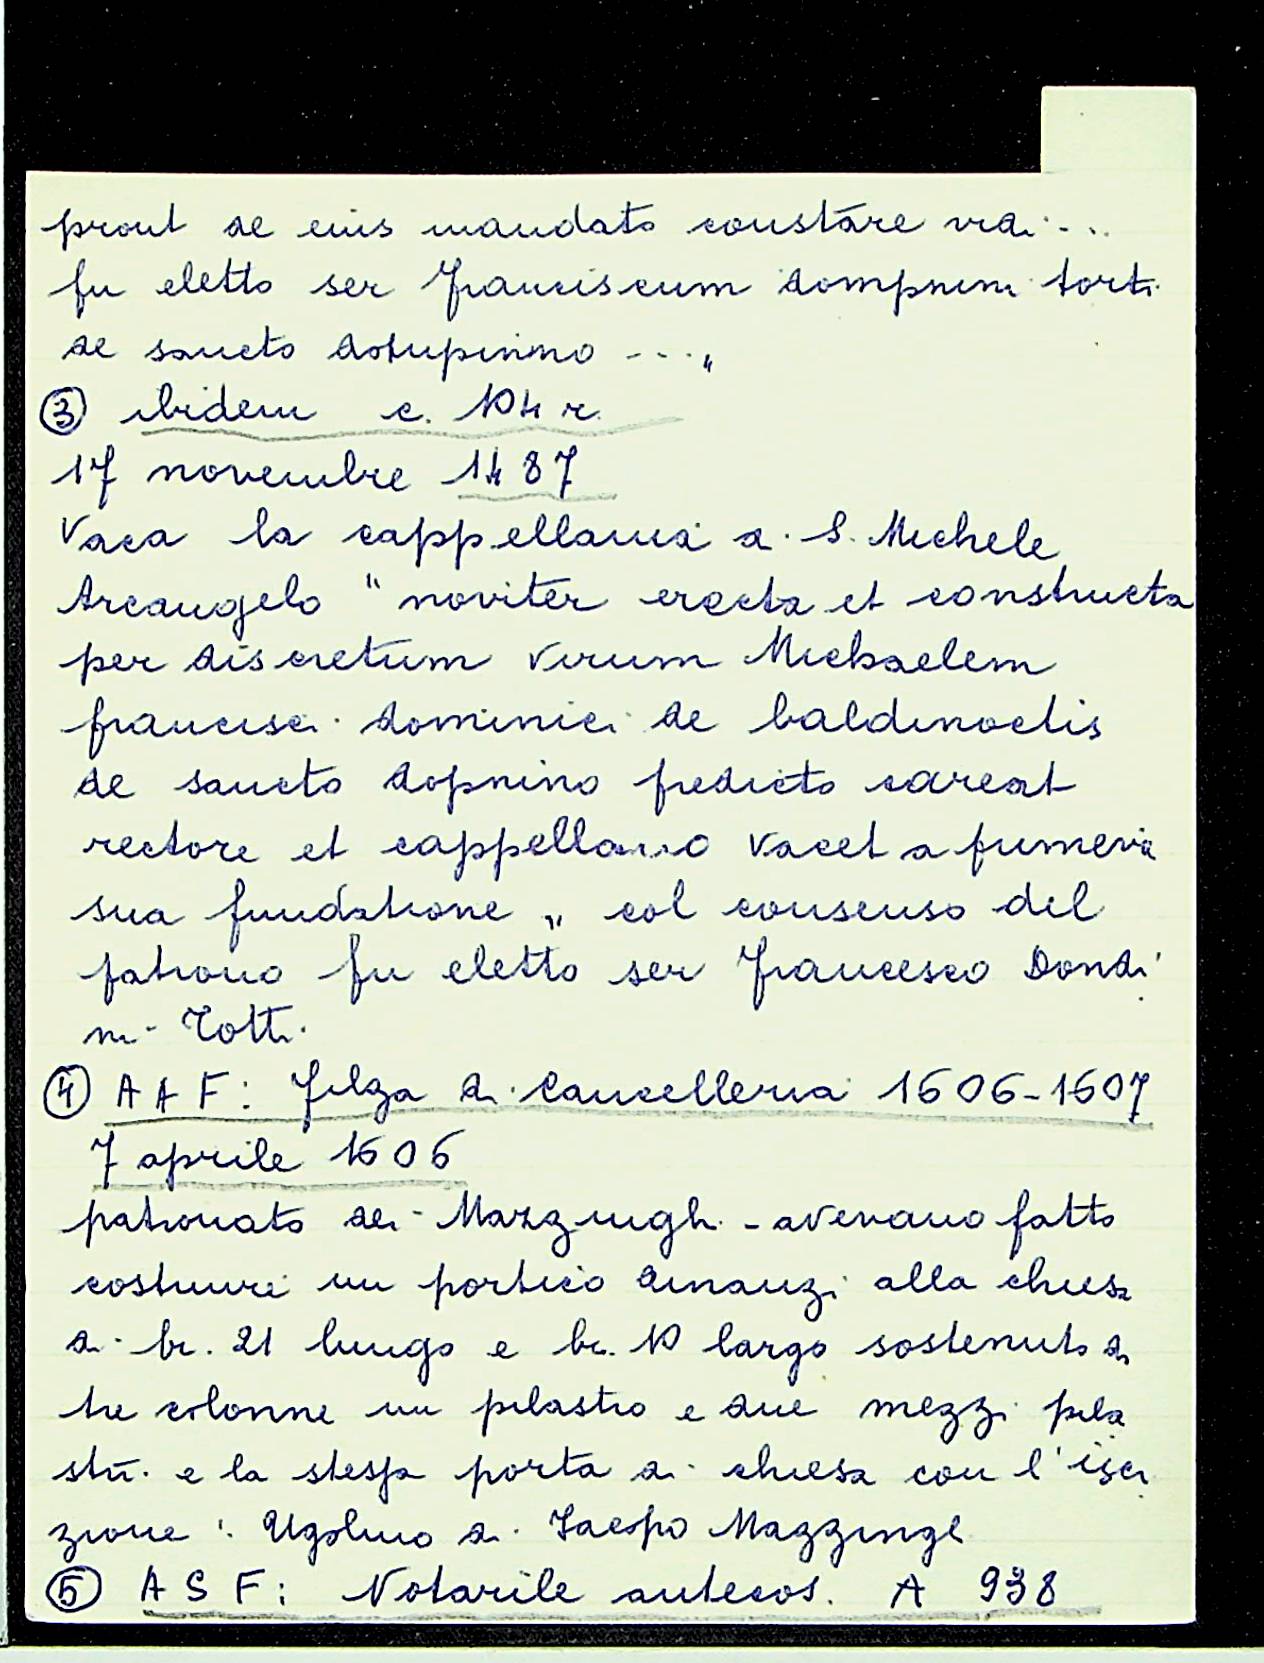 prout de eius mandato constare vidi ...
fu eletto ser Franciscum dompnini torti
de sancto dompnino ... "
③ ibidem c. 104 r.
17 novembre 1487
Vaca la cappellania di S. Michele
Arcangelo " noviter erecta et constructa
per discretum virum Michaelem
francisci dominici de baldinoctis
de sancto dopnino predicto careat
rectore et cappellano vacet a primeva
sua fundatione " col consenso del
patrono fu eletto ser Francesco Donni
ni Totti.
④ A A F : Filza di Cancelleria 1606-1607
7 aprile 1606
patronato dei Mazzinghi - avevano fatto
costruire un portico dinanzi alla chiesa
di br. 21 lungo e br. 10 largo sostenuto da
tre colonne un pilastro e due mezzi pila
stri e la stessa porta di chiesa con l'iscri
zione : Ugolino di Jacopo Mazzinghi
⑤ A S F : Notarile antecos. A 938